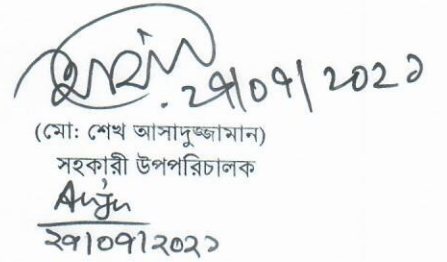 ২৭/০৭/২০২১
(মো: শেখ আসাদুজ্জামান)
সহকারী উপপরিচালক
২৭/০৭/২০২১